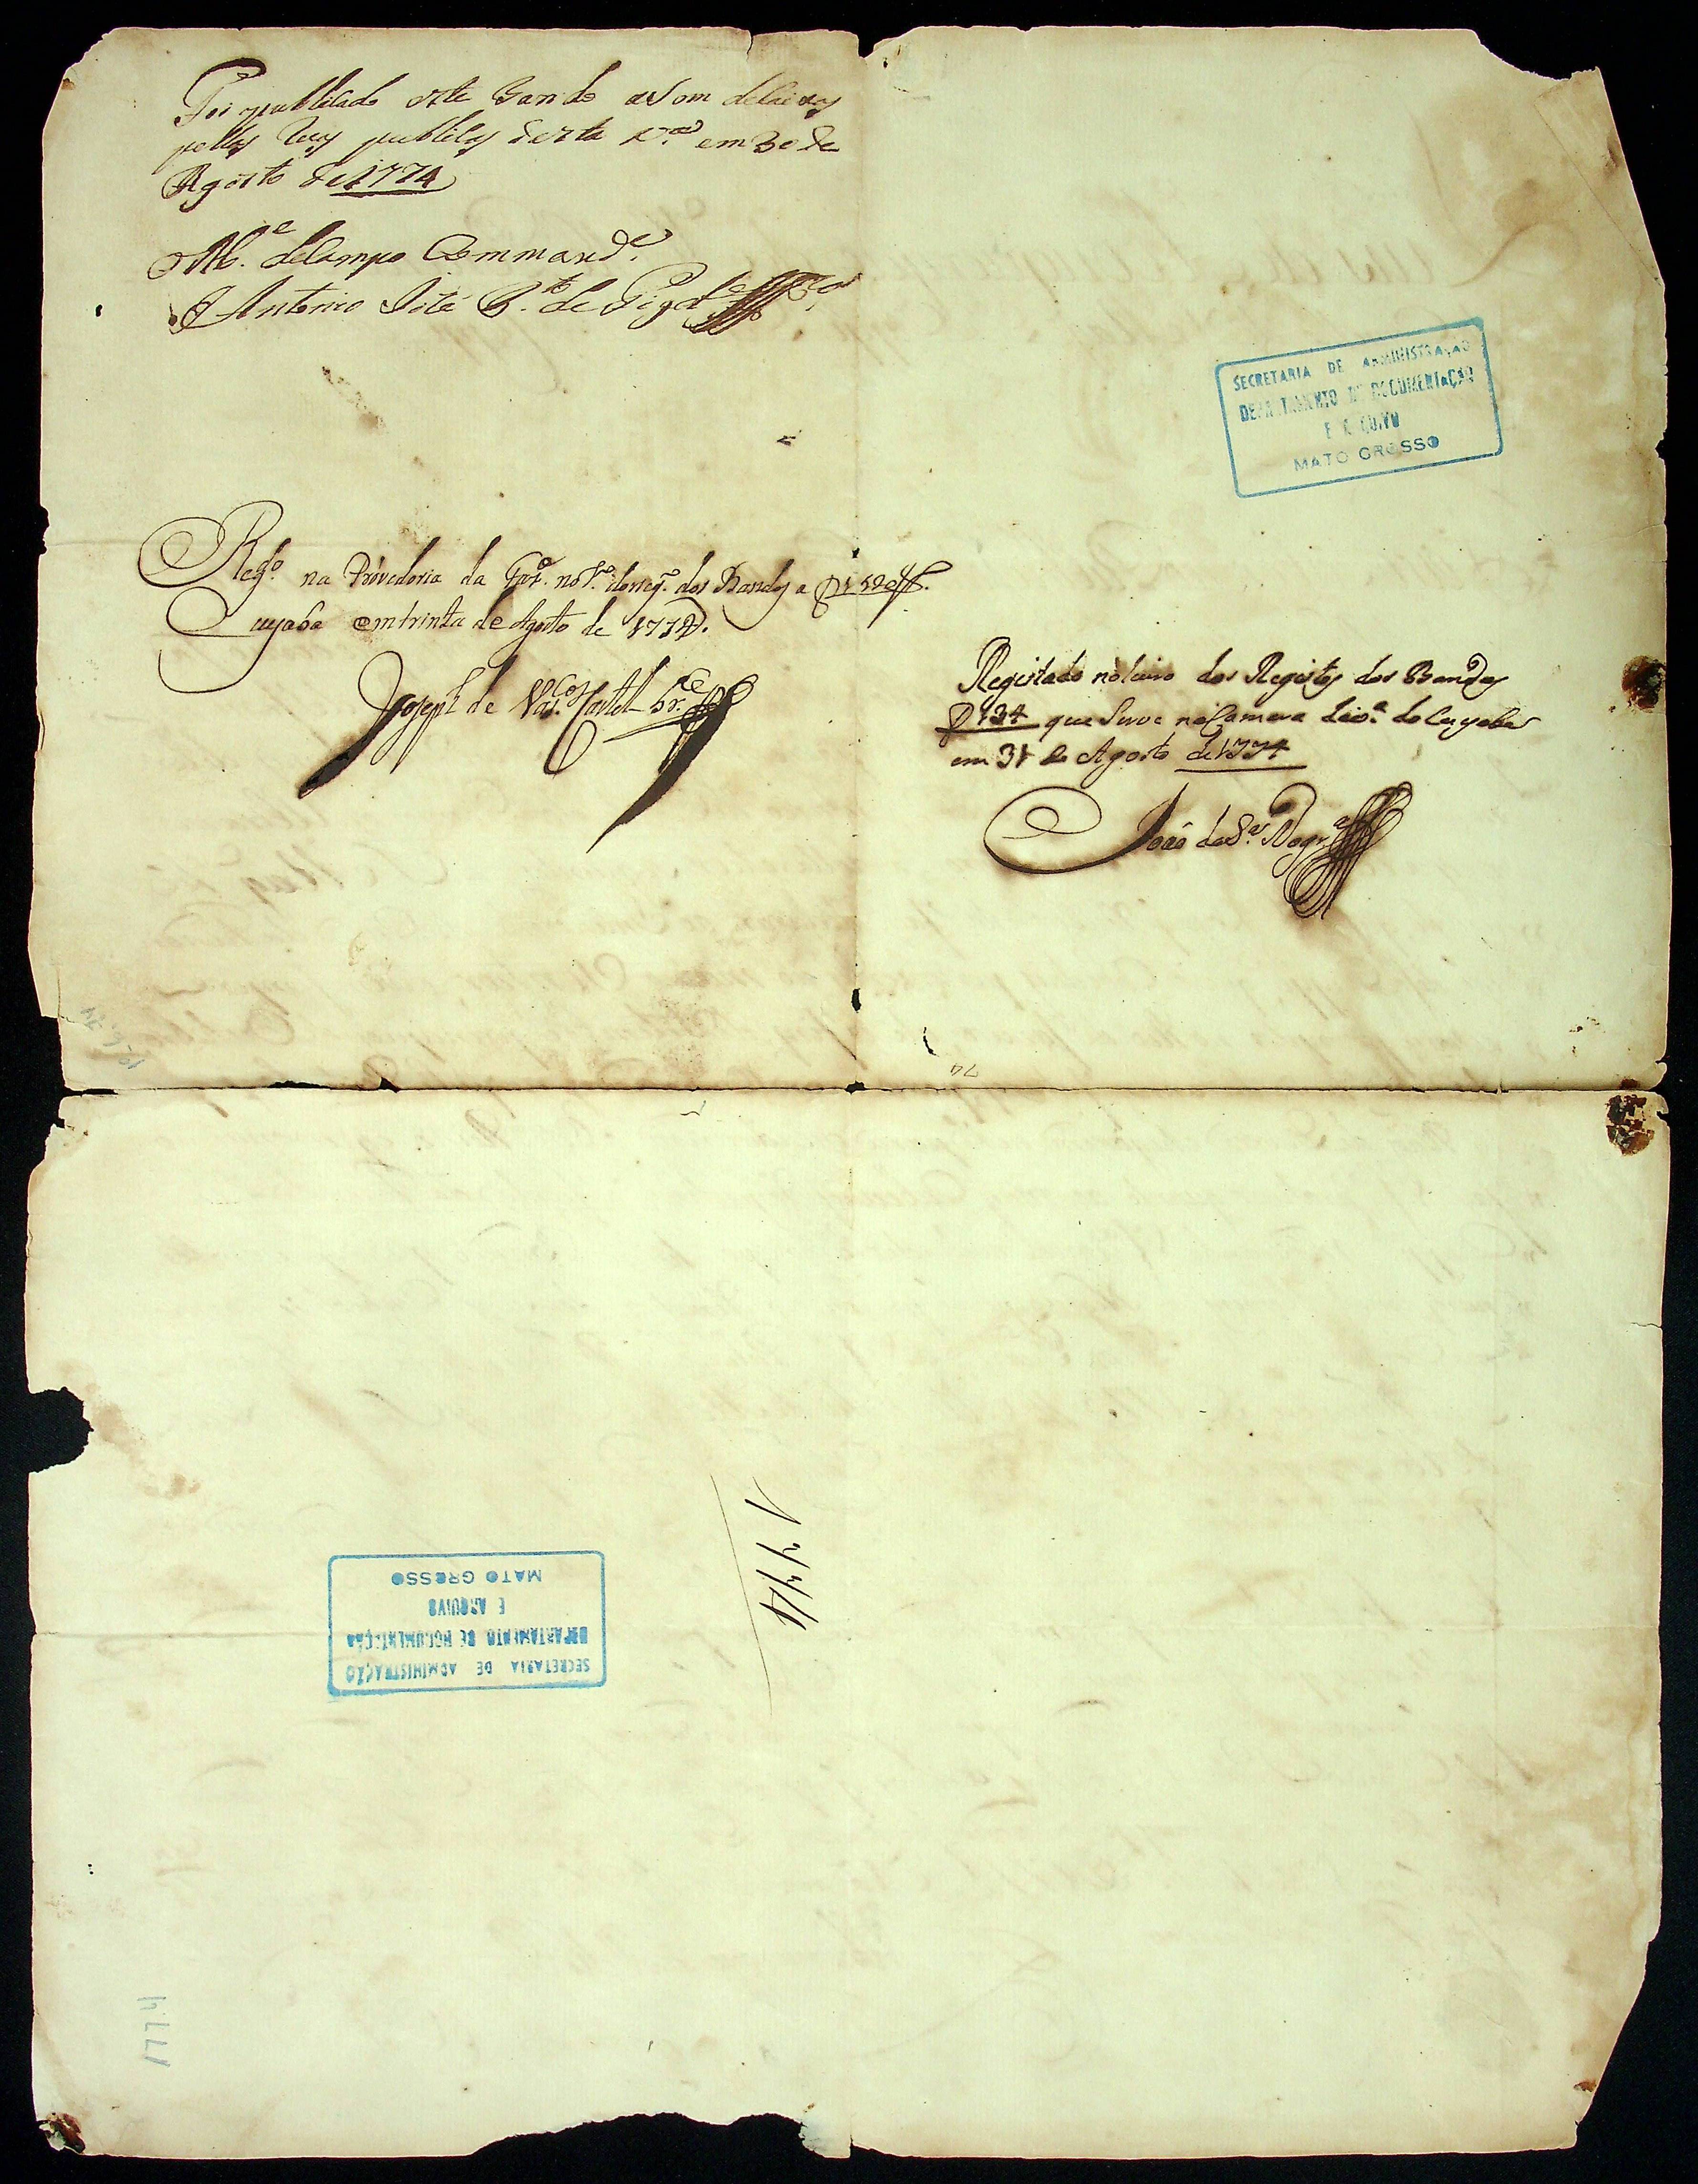 Foi publicado este Bando a Som de Caixas
pellas Ruas publicas desta V.ª em 30 de
Agosto de 1774
M.e de Campo Command.e
Antonio José P.to de Figd.o
SECRETARIA DE ADMINISTRAÇÃO
DEPARTAMENTO DE DOCUMENTAÇÃO
E ARQUIVO
MATO GROSSO
Reg.o na Provedoria da Faz.a no L.o do reg.o dos Bandos a
Cuyaba em trinta de Agosto de 1774.
Joseph de Vas.cos
Registado no Livro dos Registos dos Bandos
que Serve na Camera do Cuyaba
em 31 de Agosto de 1774
João da S.a Nogr.a
74
1774
MATO GROSSO
E ARQUIVO
DEPARTAMENTO DE DOCUMENTAÇÃO
SECRETARIA DE ADMINISTRAÇÃO
1774